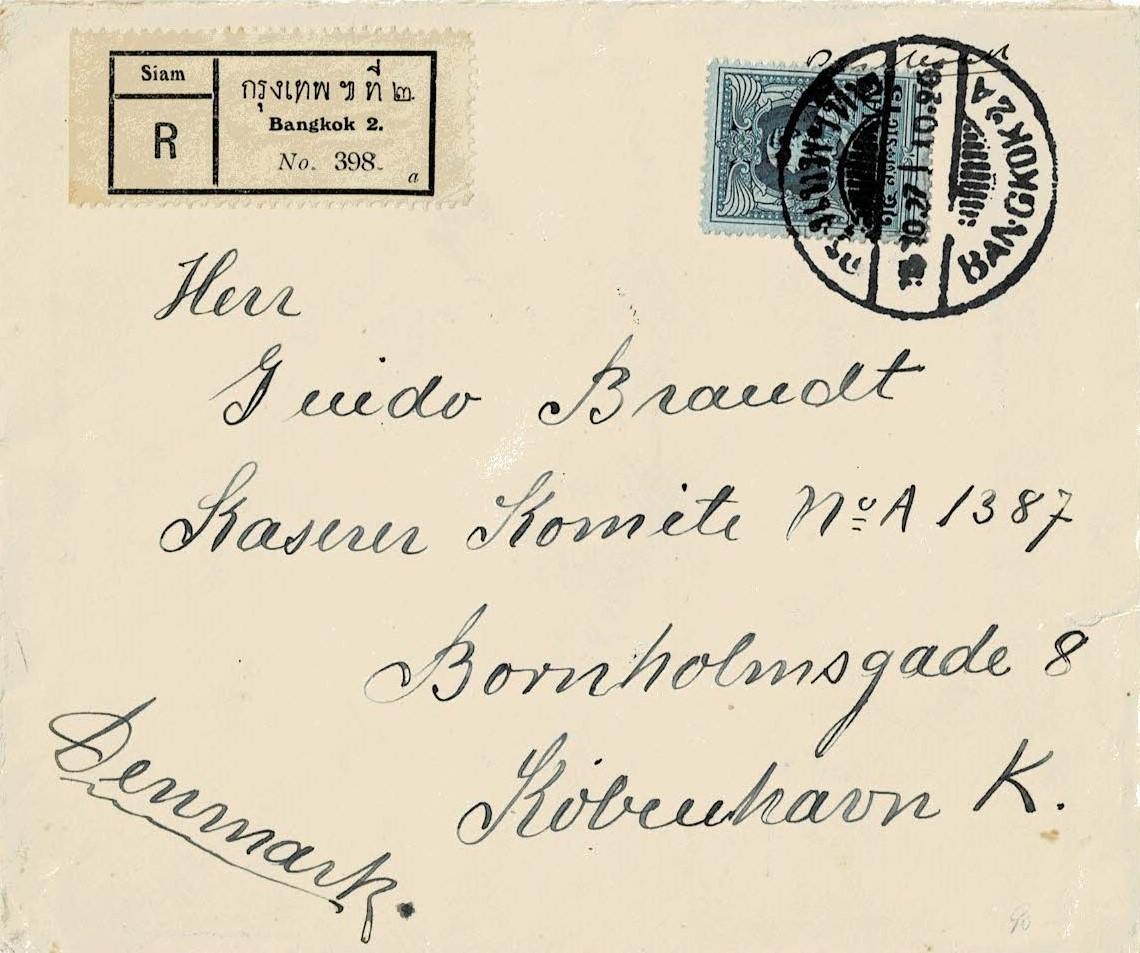 Siam
R
กรุงเทพ ฯ ที่ ๒.
Bangkok 2.
No. 398.
a
BANGKOK 2 A
Herr
Guido Brandt
Kaserer Komite No A 1387
Bornholmsgade 8
København K.
Denmark.